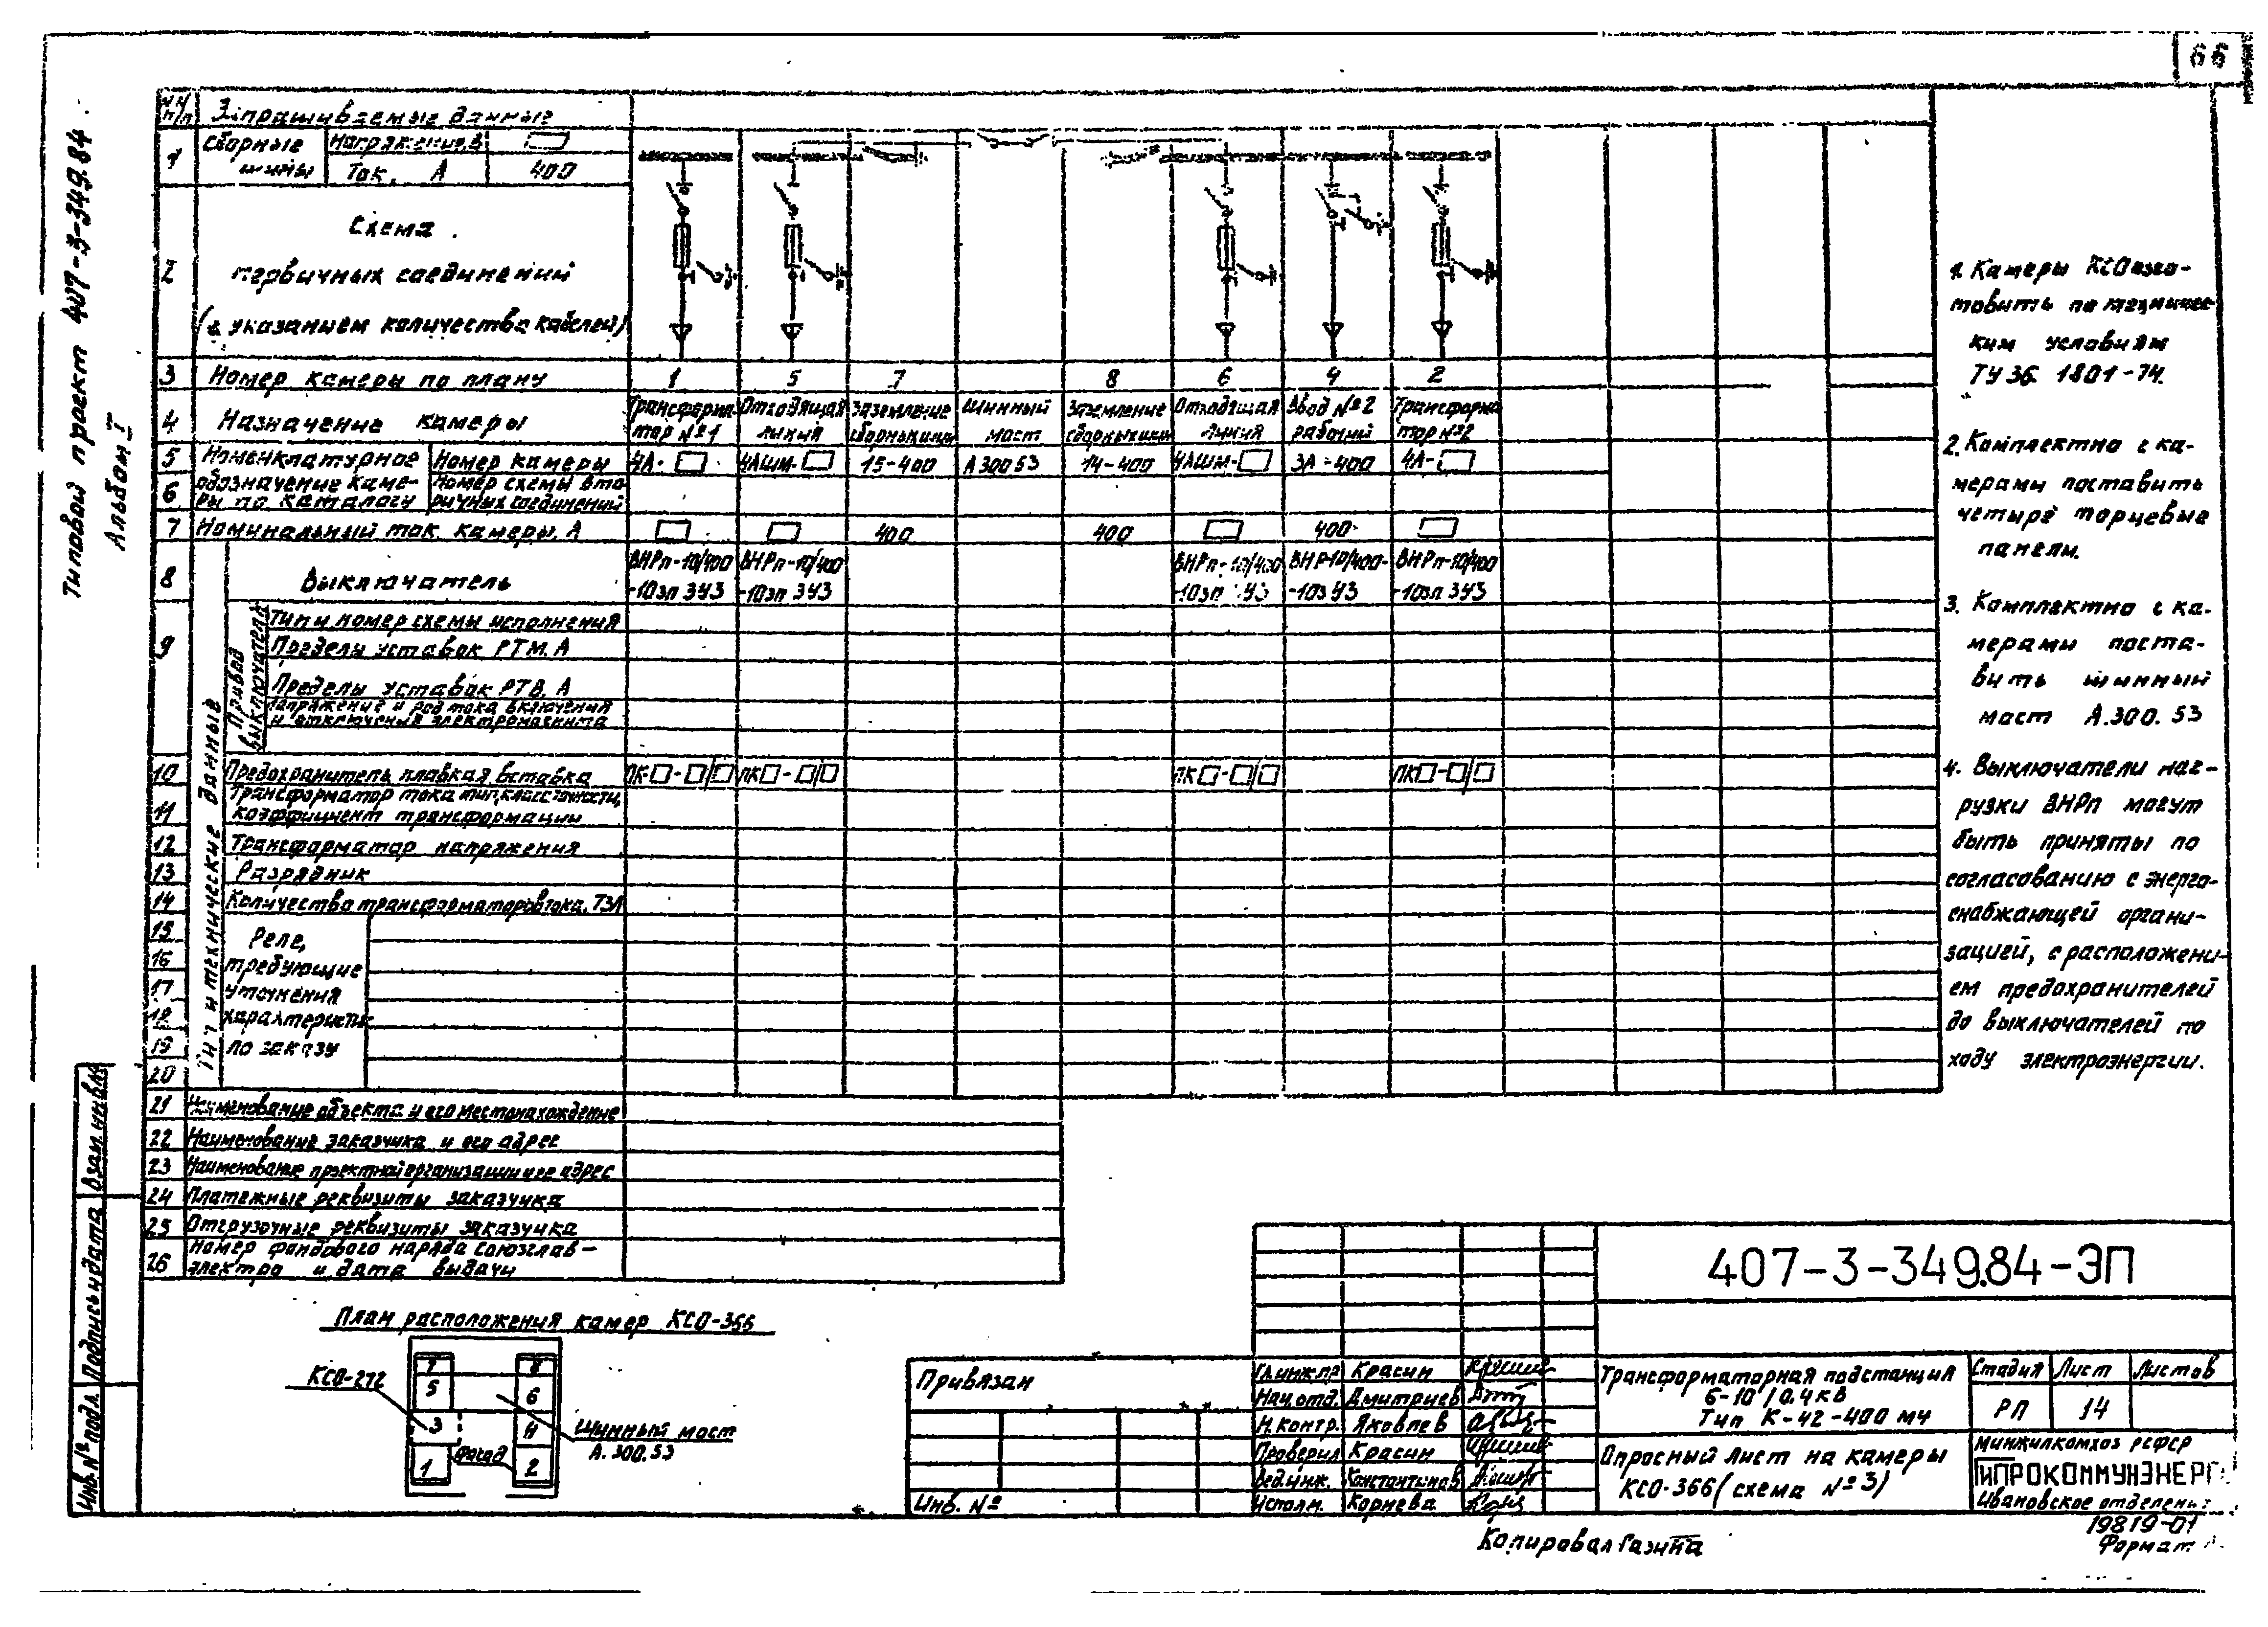 66
Типовой проект 407-3-349.84
Альбом I
NN п/п
Запрашиваемые данные
1
Сборные шины
Напряжение, В
Ток, А
400
2
Схема
первичных соединений
(с указанием количества кабелей)
3 Номер камеры по плану 1 5 7 8 6 4 2
4 Назначение камеры
Трансформатор №1
Отходящая линия
Заземление сборных шин
Шинный мост
Заземление сборных шин
Отходящая линия
Ввод №2 рабочий
Трансформатор №2
5
6
Номенклатурное обозначение камеры по каталогу
Номер камеры 4А-□ 4АШМ-□ 15-400 А30053 14-400 4АШМ-□ 3А-400 4А-□
Номер схемы вторичных соединений
7 Номинальный ток камеры, А □ □ 400 400 □ 400 □
Тип и технические данные
8 Выключатель
ВНРп-10/400 ВНРп-10/400 ВНРп-10/400 ВНР-10/400- ВНРп-10/400
-10зп 3У3 -10зп 3У3 -10зп У3 -10з У3 -10зп 3У3
9
Привод выключателя
Тип и номер схемы исполнения
Пределы уставок РТМ. А
Пределы уставок РТВ. А
Напряжение и род тока включения
и отключения электромагнита
10 Предохранитель плавкая вставка ПК□-□/□ ПК□-□/□ ПК□-□/□ ПК□-□/□
11 Трансформатор тока тип, класс точности,
коэффициент трансформации
12 Трансформатор напряжения
13 Разрядник
14 Количество трансформаторов тока, ТЗЛ
15
16
17
18
19
20
Реле,
требующие
уточнения
характеристик
по заказу
21 Наименование объекта и его местонахождение
22 Наименование заказчика и его адрес
23 Наименование проектной организации и ее адрес
24 Платежные реквизиты заказчика
25 Отгрузочные реквизиты заказчика
26 Номер фондового наряда Союзглав-
электро и дата выдачи
1. Камеры КСО изго-
товить по техничес-
ким условиям
ТУ 36 1801-74.
2. Комплектно с ка-
мерами поставить
четыре торцевые
панели.
3. Комплектно с ка-
мерами поста-
вить шинный
мост А.300.53
4. Выключатели наг-
рузки ВНРп могут
быть приняты по
согласованию с энерго-
снабжающей органи-
зацией, с расположени-
ем предохранителей
до выключателей по
ходу электроэнергии.
План расположения камер КСО-366
КСО-272
7
5
3
1
Фасад
8
6
4
2
Шинный мост
А.300.53
Взам. инв. №
Подпись и дата
Инв. № подл.
Привязан
Инв. №
407-3-349.84-ЭП
Гл.инж.пр Красин
Нач.отд. Дмитриев
Н.контр. Яковлев
Проверил Красин
Вед.инж. Константинов
Исполн. Корнева
Трансформаторная подстанция
6-10/0,4кВ
Тип К-42-400 м4
Стадия Лист Листов
РП 14
Опросный лист на камеры
КСО-366 (схема №3)
Минжилкомхоз РСФСР
ГИПРОКОММУНЭНЕРГО
Ивановское отделение
19819-01
Копировал Газина
Формат